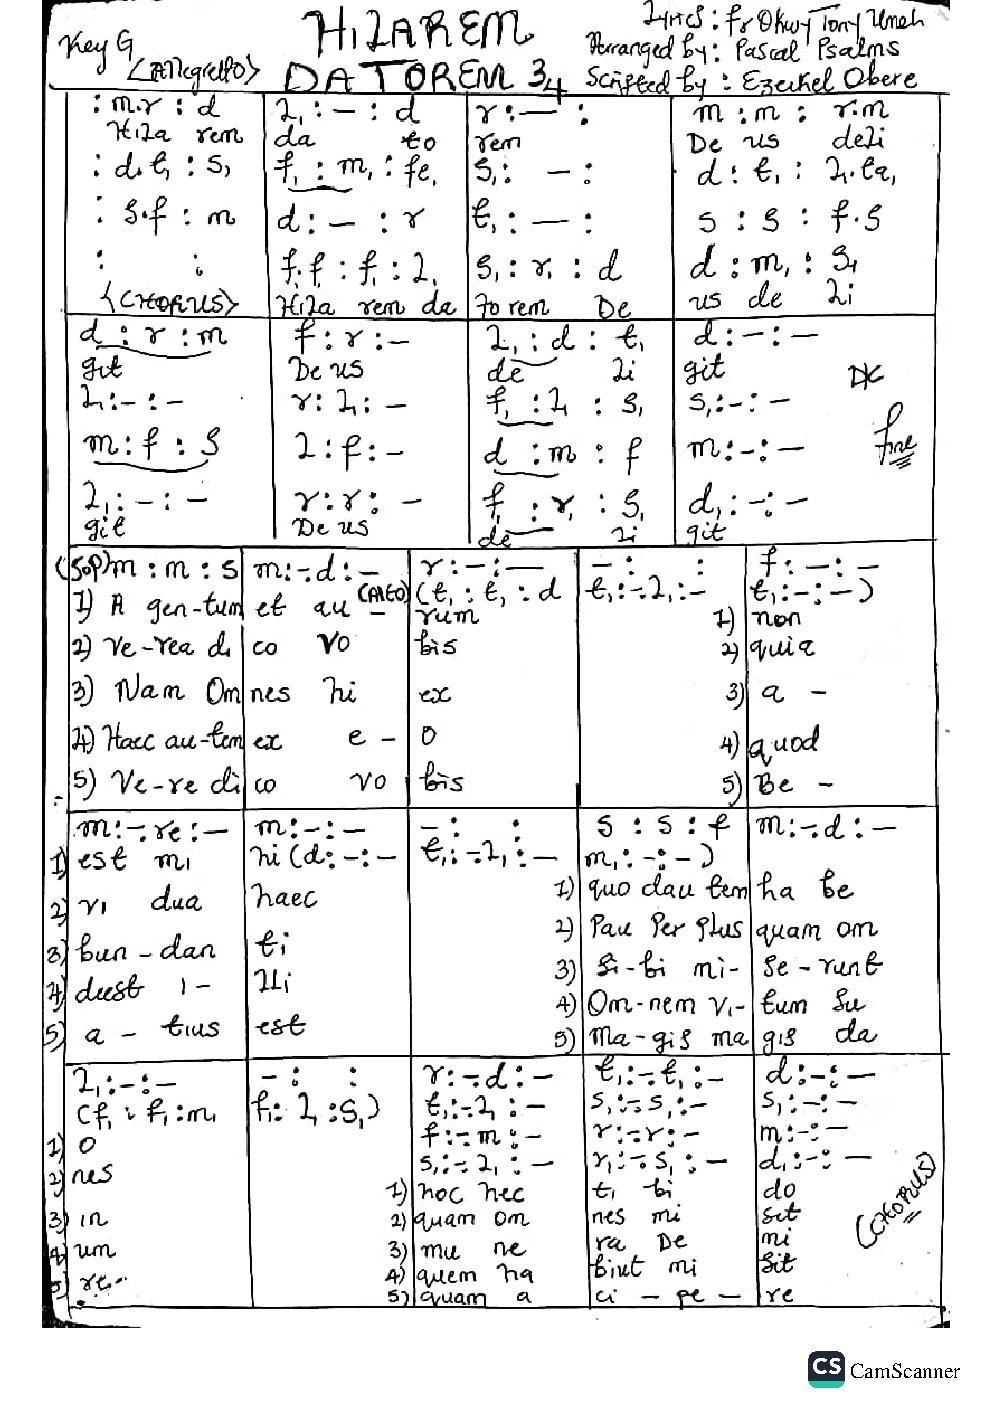 Key G
<Allegretto>
HILAREM
DATOREM 3/4
Lyrics : Fr Okwy Tony Umeh
Arranged by: Pascal Psalms
Scripted by : Ezeikel Obere
: m.r : d | l, : — : d | r : — : | m : m : r.m
Hila rem | da to | rem | De us deli
: d.t, : s, | f, : m, : fe, | s, : — : | d : t, : l,.ta,
: s.f : m | d : — : r | t, : — : | s : s : f.s
: : | f,.f, : f, : l, | s, : r, : d | d : m, : s,
<CHORUS> | Hila rem da | to rem De | us de li
d : r : m | f : r : — | l, : d : t, | d : — : —
git | De us | de li | git
l, : — : — | r : l, : — | f, : l, : s, | s, : — : —
m : f : s | l : f : — | d : m : f | m : — : —
l, : — : — | r : r : — | f, : r, : s, | d, : — : —
git | De us | de li | git
DC
fine
(Sop) m : m : s | m : — . d : — | r : — : — | — : : | f : — : —
(Alto) (t, : t, : d | t, : — . l, : — | t, : — : —)
1) A gen-tum | et au - | rum | 1) non
2) Ve-rea di | co vo | bis | 2) quia
3) Nam Om | nes hi | ex | 3) a -
4) Haec au-tem | ex e - | o | 4) quod
5) Ve-re di | co vo | bis | 5) Be -
m : — . re : — | m : — : — | — : : | s : s : f | m : — . d : —
1) est mi | hi (d : — : — | t, : — . l, : — | m, : — : —)
2) vi dua | haec | 1) quo dau tem | ha be
3) bun - dan | ti | 2) Pau Per plus | quam om
4) deest i - | lli | 3) Si-bi mi- | se-runt
5) a - tius | est | 4) Om-nem vi- | tum su
5) Ma-gis ma | gis da
l, : — : — | — : : | r : — . d : — | t, : — . t, : — | d : — : —
(f, : f, : m, | f, : l, : s,) | t, : — . l, : — | s, : — . s, : — | s, : — : —
1) o | f : — . m : — | r : — . r : — | m : — : —
2) nes | s, : — . l, : — | r, : — . s, : — | d, : — : —
3) in | 1) hoc hec | ti bi | do
4) um | 2) quam om | nes mi | sit
5) re- | 3) mu ne | ra De | mi
4) quem ha | biut mi | sit
5) quam a | ci - pe - | re
(CHORUS)
CS CamScanner